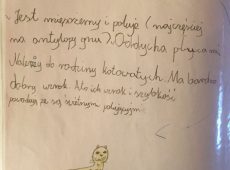 Jest mięsożerny i poluje (najczęściej
na antylopy gnu). Oddycha płucami
Należy do rodziny kotowatych. Ma bardzo
dobry wzrok. Ato ich wzrok i szybkość
powodują że są świetnym polującym